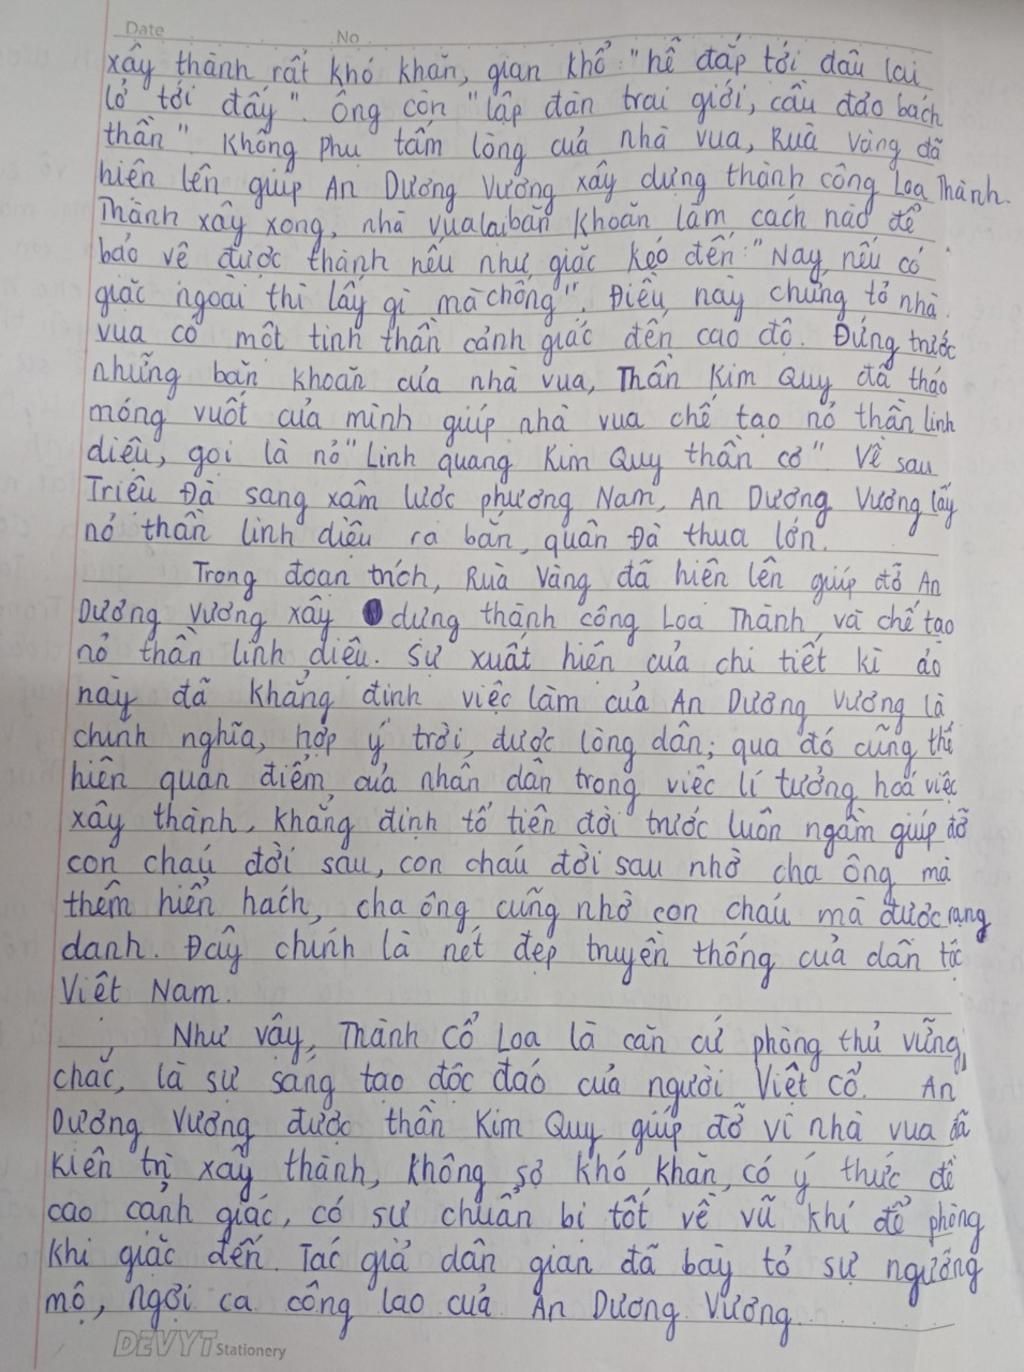 Date No
xây thành rất khó khăn, gian khổ "hễ đắp tới đâu lại
lở tới đấy". Ông còn "lập đàn trai giới, cầu đảo bách
thần". Không phụ tấm lòng của nhà vua, Rùa Vàng đã
hiện lên giúp An Dương Vương xây dựng thành công Loa Thành.
Thành xây xong, nhà vua lại băn khoăn làm cách nào để
bảo vệ được thành nếu như giặc kéo đến: "Nay, nếu có
giặc ngoài thì lấy gì mà chống". Điều này chứng tỏ nhà
vua có một tinh thần cảnh giác đến cao độ. Đứng trước
những băn khoăn của nhà vua, Thần Kim Quy đã tháo
móng vuốt của mình giúp nhà vua chế tạo nỏ thần linh
diệu, gọi là nỏ "Linh quang Kim Quy thần cơ". Về sau
Triệu Đà sang xâm lược phương Nam, An Dương Vương lấy
nỏ thần linh diệu ra bắn, quân Đà thua lớn.
Trong đoạn trích, Rùa Vàng đã hiện lên giúp đỡ An
Dương Vương xây dựng thành công Loa Thành và chế tạo
nỏ thần linh diệu. Sự xuất hiện của chi tiết kì ảo
này đã khẳng định việc làm của An Dương Vương là
chính nghĩa, hợp ý trời, được lòng dân; qua đó cũng thể
hiện quan điểm của nhân dân trong việc lí tưởng hoá việc
xây thành, khẳng định tổ tiên đời trước luôn ngầm giúp đỡ
con cháu đời sau, con cháu đời sau nhờ cha ông mà
thêm hiển hách, cha ông cũng nhờ con cháu mà được rạng
danh. Đây chính là nét đẹp truyền thống của dân tộc
Việt Nam.
Như vậy, Thành Cổ Loa là căn cứ phòng thủ vững
chắc, là sự sáng tạo độc đáo của người Việt cổ. An
Dương Vương được thần Kim Quy giúp đỡ vì nhà vua đã
kiên trì xây thành, không sợ khó khăn, có ý thức đề
cao cảnh giác, có sự chuẩn bị tốt về vũ khí để phòng
khi giặc đến. Tác giả dân gian đã bày tỏ sự ngưỡng
mộ, ngợi ca công lao của An Dương Vương.
DEVYT Stationery